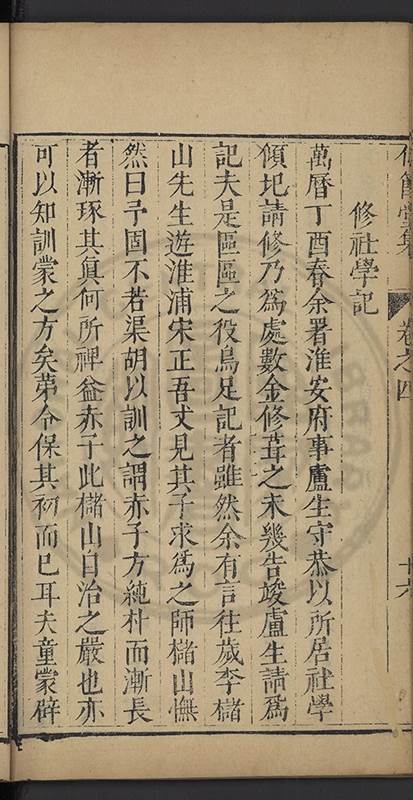 卷之四
修社學記
萬曆丁酉春余署淮安府事盧生守恭以所居社學
傾圮請修乃爲處數金修葺之未幾告竣盧生請爲
記夫是區區之役烏足記者雖然余有言往歲李櫧
山先生遊淮浦宋正吾丈見其子求爲之師櫧山憮
然曰予固不若渠胡以訓之謂赤子方純朴而漸長
者漸琢其眞何所裨益赤子此櫧山自治之嚴也亦
可以知訓蒙之方矣苐令保其初而已耳夫童蒙僻